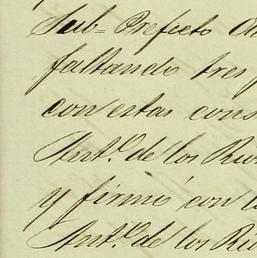 Sub= Prefecto
faltando tres
con estas cons
Ant.º de los Rios
y firmó con
Ant.º de los Rios